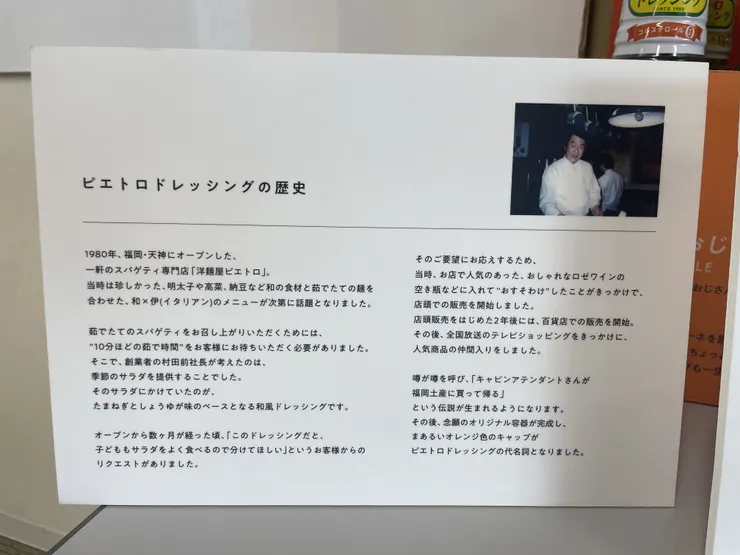 ドレッシング
SINCE 1980
コレステロール0
ピエトロドレッシングの歴史
1980年、福岡・天神にオープンした、
一軒のスパゲティ専門店「洋麺屋ピエトロ」。
当時は珍しかった、明太子や高菜、納豆など和の食材と茹でたての麺を
合わせた、和×伊(イタリアン)のメニューが次第に話題となりました。
茹でたてのスパゲティをお召し上がりいただくためには、
"10分ほどの茹で時間"をお客様にお待ちいただく必要がありました。
そこで、創業者の村田前社長が考えたのは、
季節のサラダを提供することでした。
そのサラダにかけていたのが、
たまねぎとしょうゆが味のベースとなる和風ドレッシングです。
オープンから数ヶ月が経った頃、「このドレッシングだと、
子どももサラダをよく食べるので分けてほしい」というお客様からの
リクエストがありました。
そのご要望にお応えするため、
当時、お店で人気のあった、おしゃれなロゼワインの
空き瓶などに入れて"おすそわけ"したことがきっかけで、
店頭での販売を開始しました。
店頭販売をはじめた2年後には、百貨店での販売を開始。
その後、全国放送のテレビショッピングをきっかけに、
人気商品の仲間入りをしました。
噂が噂を呼び、「キャビンアテンダントさんが
福岡土産に買って帰る」
という伝説が生まれるようになります。
その後、念願のオリジナル容器が完成し、
まあるいオレンジ色のキャップが
ピエトロドレッシングの代名詞となりました。
おじ
LE
おじさん
ーネを
ちょっ